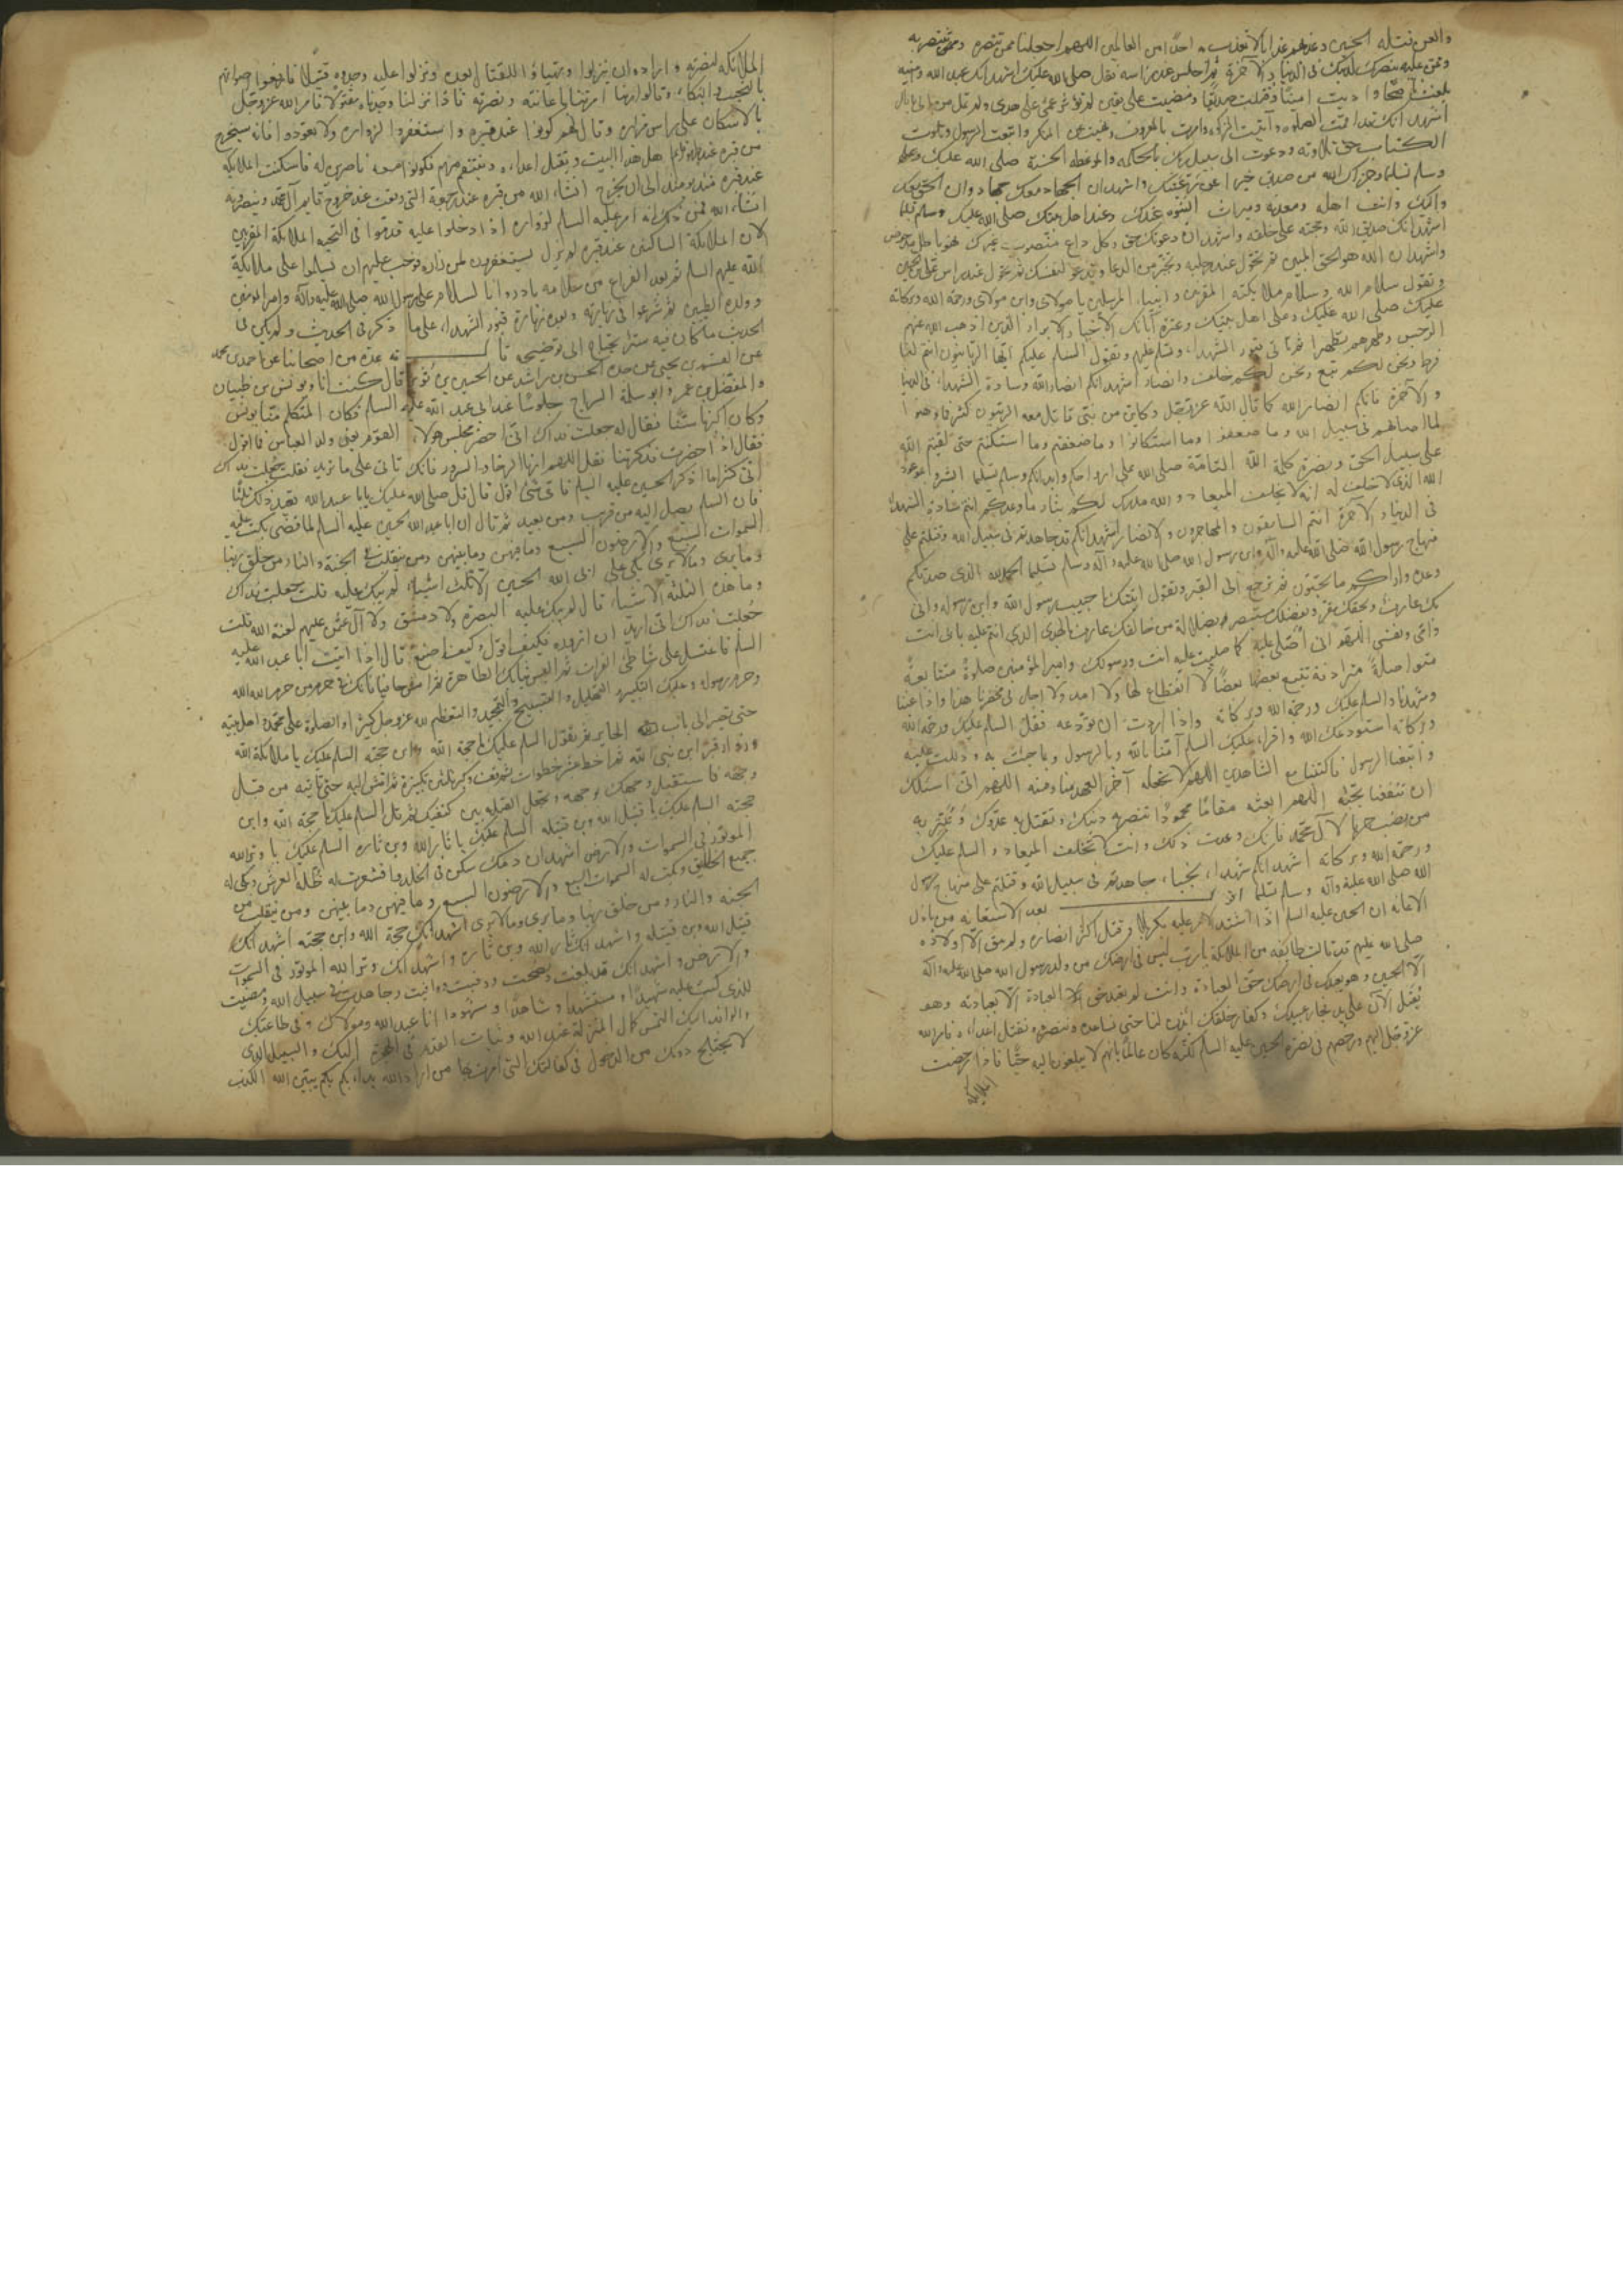 والعن قتلة الحسين وعذبهم عذابا لا تعذب به احدا من العالمين اللهم اجعلنا ممن تنصره وممن تنتصر به
وتمن عليه بنصرك لدينك في الدنيا والاخرة ثم اجلس عند راسه فقل صلى الله عليك اشهد انك عبد الله وامينه
بلغت ناصحا واديت امينا وقتلت صديقا ومضيت على يقين لم تؤثر عمى على هدى ولم تمل من حق الى باطل
اشهد انك قد اقمت الصلوة وآتيت الزكوة وامرت بالمعروف ونهيت عن المنكر واتبعت الرسول وتلوت
الكتاب حق تلاوته ودعوت الى سبيل ربك بالحكمة والموعظة الحسنة صلى الله عليك
وسلم تسليما وجزاك الله من صديق خيرا عن رعيتك واشهد ان الجهاد معك جهاد وان الحق معك
واليك وانت اهله ومعدنه وميراث النبوة عندك وعند اهل بيتك صلى الله عليك وسلم تسليما
اشهد انك صديق الله وحجته على خلقه واشهد ان دعوتك حق وكل داع منصوب غيرك فهو باطل مدحوض
واشهد ان الله هو الحق المبين ثم تحول عند رجليه وتخير من الدعا وتدعو لنفسك ثم تحول عند راس علي بن الحسين
وتقول سلام الله وسلام ملائكته المقربين وانبياءه المرسلين يا مولاي وابن مولاي ورحمة الله وبركاته
عليك صلى الله عليك وعلى اهل بيتك وعترة آبائك الاخيار الابرار الذين اذهب الله عنهم
الرجس وطهرهم تطهيرا ثم تاتي قبور الشهداء وتسلم عليهم وتقول السلم عليكم ايها الربانيون انتم لنا
فرط ونحن لكم تبع ونحن لكم خلف وانصار اشهد انكم انصار الله وسادة الشهداء في الدنيا
والآخرة فانكم انصار الله كما قال الله عز وجل وكاين من نبي قاتل معه ربيون كثير فما وهنوا
لما اصابهم في سبيل الله وما ضعفوا وما استكانوا وما ضعفتم وما استكنتم حتى لقيتم الله
على سبيل الحق ونصرة كلمة الله التامة صلى الله على ارواحكم وابدانكم وسلم تسليما ابشروا بموعد
الله الذي لا خلف له انه لا يخلف الميعاد والله مدرك لكم بثار ما وعدكم انتم سادة الشهداء
في الدنيا والآخرة انتم السابقون والمهاجرون والانصار اشهد انكم قد جاهدتم في سبيل الله وقتلتم على
منهاج رسول الله صلى الله عليه وآله وابن رسول الله صلى الله عليه وآله وسلم تسليما الحمد لله الذي صدقكم
وعده واراكم ما تحبون ثم ترجع الى القبر وتقول اتيتك يا حبيب رسول الله وابن رسوله واني
بك عارف وبحقك مقر وبفضلك مستبصر بضلالة من خالفك عارف بالهدى الذي انتم عليه بابي انت
وامي ونفسي اللهم اني اصلي عليه كما صليت عليه انت ورسولك وامير المؤمنين صلوة متتابعة
متواصلة مترادفة تتبع بعضها بعضا لا انقطاع لها ولا امد ولا اجل في محضرنا هذا واذا غبنا
وشهدنا والسلم عليك ورحمة الله وبركاته واذا اردت ان تودعه فقل السلم عليك ورحمة الله
وبركاته استودعك الله واقرا عليك السلم آمنا بالله وبالرسول وبما جئت به ودللت عليه
واتبعنا الرسول فاكتبنا مع الشاهدين اللهم لا تجعله آخر العهد منا ومنه اللهم انى اسئلك
ان تنفعنا بحبه اللهم ابعثه مقاما محمودا تنصر به دينك وتقتل به عدوك وتبير به
من نصب حربا لآل محمد فانك وعدت ذلك وانت لا تخلف الميعاد والسلم عليك
ورحمة الله وبركاته اشهد انكم شهداء نجباء جاهدتم في سبيل الله وقتلتم على منهاج رسول
الله صلى الله عليه وآله وسلم تسليما بعد الاستعانة من
الاعانة ان الحسين عليه السلم لما اشتد الامر عليه بكربلا وقتل اكثر انصاره ولم يبق الا اولاده
صلى الله عليهم قد قالت طائفة من الملائكة يا رب ليس في ارضك من ولد رسول الله صلى الله عليه وآله
الا الحسين وهو يعبدك في ارضك حق العبادة وانت لم تعبد حق العبادة الا بعبادته وهو
يقتل الآن على يد فجار عبيدك وكفار خلقك ائذن لنا حتى نساعده وننصره ونقتل اعداءه فامر الله
عز وجل اليهم ورخصهم في نصرة الحسين عليه السلم لكنه كان عالما بانهم لا يبلغون اليه حيا فاذا رخصت
الملائكة
الملائكة لنصرته وارادوا ان ينزلوا ويتهياؤا للقتال بعده ونزلوا عليه وجدوه قتيلا فارفعوا اصواتهم
بالنحيب والبكاء وقالوا ربنا امرتنا باعانته ونصرته فاذا نزلنا وجدناه مقتولا فامر الله عز وجل
بالاسكان على راس مزاره وقال لهم كونوا عند قبره واستغفروا لزواره ولا تعودوا فانه سيخرج
من قبره عند قائم اهل هذا البيت ويقتل اعداءه وينتقم منهم فكونوا معه ناصرين له فاسكنت الملائكة
عند قبره منذ يومئذ الى ان يخرج انشاء الله من قبره عند رجعته التي وقعت عند خروج قايم آل محمد وينصرونه
انشاء الله فمن ذلك انه امر عليه السلم لزواره اذا دخلوا عليه قدموا في التحية الملائكة المقربين
لان الملائكة الساكنين عند قبره لم يزل يستغفرون لمن زاره فوجب عليهم ان يسلموا على ملائكة
الله عليهم السلم ثم بعد الفراغ من سلامه بادروا بالسلام على رسول الله صلى الله عليه وآله وامير المؤمنين
وولده الطيبين ثم شرعوا في زيارته وبعده زيارة قبور الشهداء على ما ذكر في الحديث ولم يكن في
الحديث ما كان فيه سترا يحتاج الى توضيحه عدة من اصحابنا عن احمد بن محمد
عن القسم بن يحيى عن جده الحسن بن راشد عن الحسين بن ثوير قال كنت انا ويونس بن ظبيان
والمفضل بن عمر وابو سلمة السراج جلوسا عند ابى عبد الله عليه السلم فكان المتكلم منا يونس
وكان اكبرنا سنا فقال له جعلت فداك انى احضر مجلس هؤلاء القوم يعني ولد العباس فما اقول
فقال اذا حضرت فذكرتنا فقل اللهم ارنا الرخاء والسرور فانك تاتى على ما تريد فقلت جعلت فداك
انى كثيرا ما اذكر الحسين عليه السلم فاى شئ اقول قال قل صلى الله عليك يابا عبد الله تعيد ذلك ثلثا
فان السلم يصل اليه من قريب ومن بعيد ثم قال ان ابا عبد الله الحسين عليه السلم لما قضى بكت عليه
السموات السبع والارضون السبع وما فيهن وما بينهن ومن ينقلب في الجنة والنار من خلق ربنا
وما يرى وما لا يرى بكى على ابى عبد الله الحسين الا ثلثة اشياء لم تبك عليه قلت جعلت فداك
وما هذه الثلثة الاشياء قال لم تبك عليه البصرة ولا دمشق ولا آل عثمن عليهم لعنة الله قلت
جعلت فداك انى اريد ان ازوره فكيف اقول وكيف اصنع قال اذا اتيت ابا عبد الله عليه
السلم فاغتسل على شاطئ الفرات ثم البس ثيابك الطاهرة ثم امش حافيا فانك في حرم من حرم الله
وحرم رسوله وعليك بالتكبير والتهليل والتسبيح والتمجيد والتعظيم لله عز وجل كثيرا والصلوة على محمد واهل بيته
حتى تصير الى باب الحاير ثم تقول السلم عليك يا حجة الله وابن حجته السلم عليك يا ملائكة الله
وزوار قبر ابن نبى الله ثم اخط عشر خطوات ثم قف وكبر ثلثين تكبيرة ثم امش اليه حتى تاتيه من قبل
وجهه فاستقبل وجهك بوجهه وتجعل القبلة بين كتفيك ثم قل السلم عليك يا حجة الله وابن
حجته السلم عليك يا قتيل الله وبن قتيله السلم عليك يا ثار الله وبن ثاره السلم عليك يا وتر الله
الموتور في السموات والارض اشهد ان دمك سكن في الخلد واقشعرت له اظلة العرش وبكى له
جميع الخلايق وبكت له السموات السبع والارضون السبع وما فيهن وما بينهن ومن ينقلب في
الجنة والنار ومن خلق ربنا وما يرى وما لا يرى اشهد انك حجة الله وابن حجته اشهد انك
قتيل الله وبن قتيله واشهد انك ثار الله وبن ثاره واشهد انك وتر الله الموتور في السموات
والارض واشهد انك قد بلغت ونصحت ووفيت ووافيت وجاهدت في سبيل الله ومضيت
للذى كنت عليه شهيدا ومستشهدا وشاهدا ومشهودا انا عبد الله ومولاك وفي طاعتك
والوافد اليك التمس كمال المنزلة عند الله وثبات القدم في الهجرة اليك والسبيل الذى
لا يختلج دونك من الدخول في كفالتك التى امرت بها من اراد الله بدا بكم بكم يبين الله الكذب